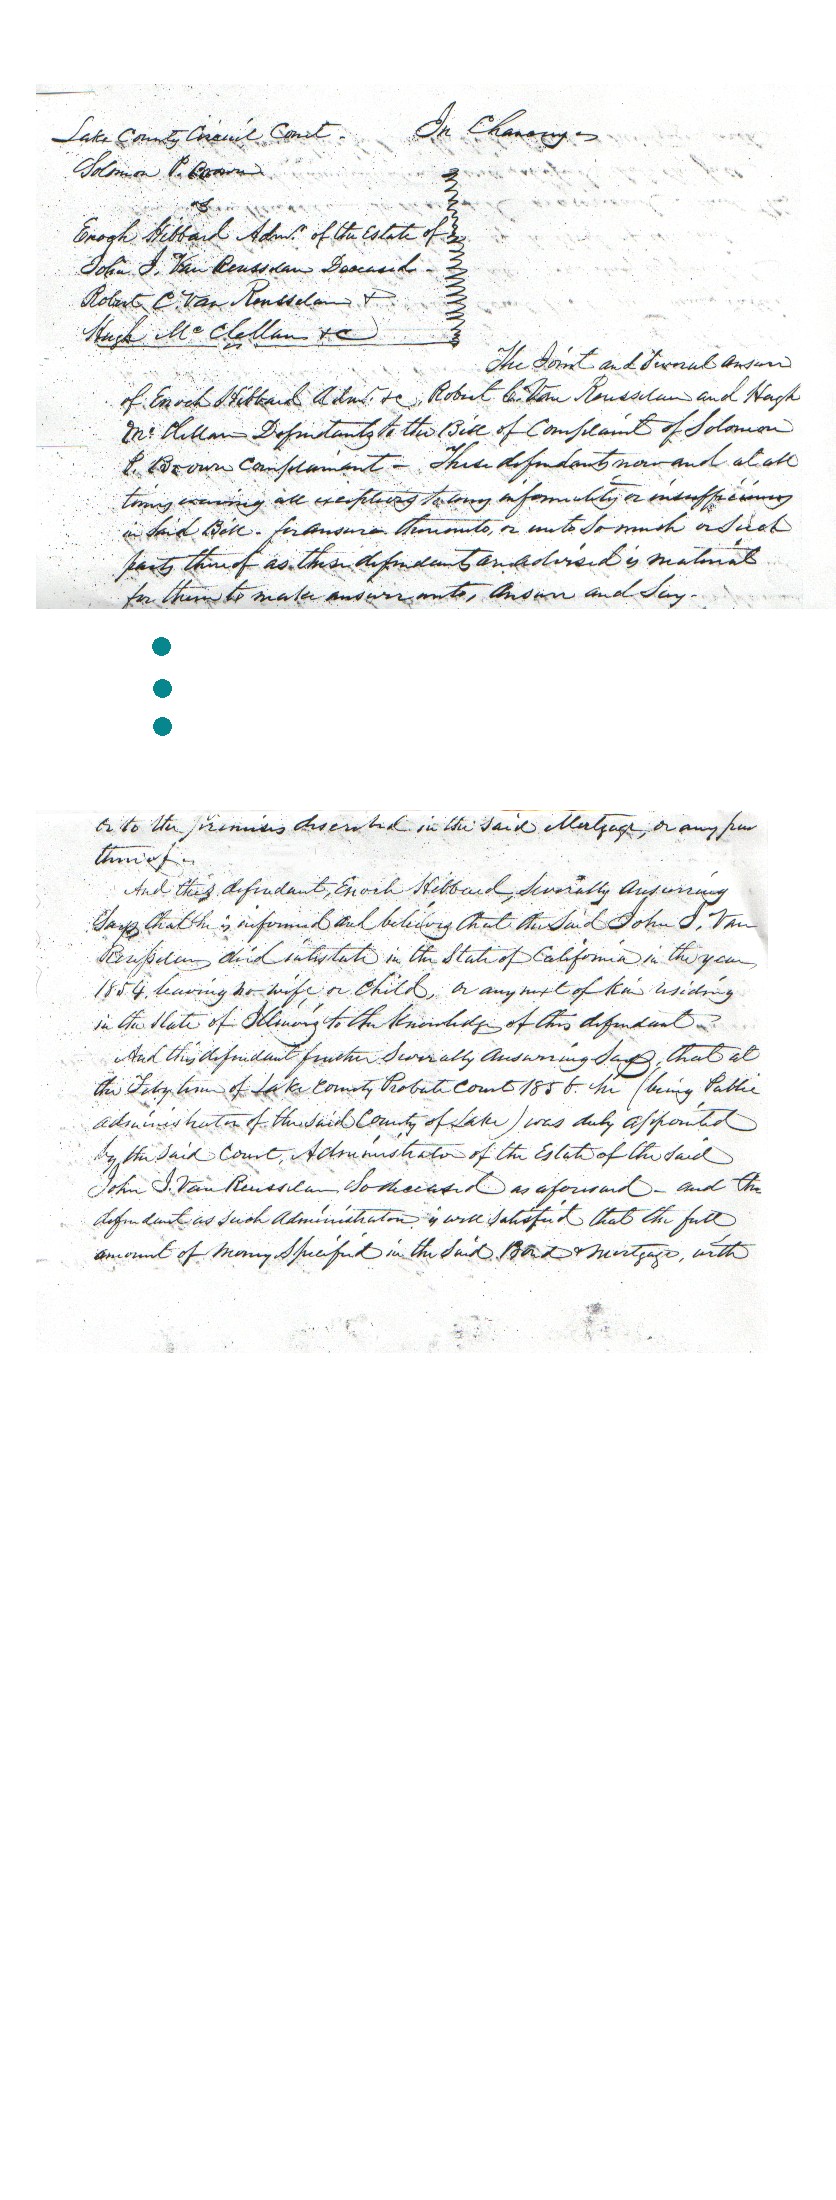 Lake County Circuit Court. In Chancery
Solomon P. Brown
vs
Enogh Hibbard Admr. of the Estate of
John J. Van Renssalaer Deceased.
Robert C. Van Rensselaer &
Hugh Mc Clellan &c
The Joint and Several answer
of Enoch Hibbard Admr. &c, Robert C. Van Rensselaer and Hugh
Mc Clellan Defendants to the Bill of Complaint of Solomon
P. Brown Complainant - These defendants now and at all
times saving all exceptions to any informality or insufficiency
in said Bill - for answer thereunto, or unto so much or such
parts thereof as these defendants are advised is material
for them to make answer unto, answer and Say.
or to the premises described in the said Mortgage, or any part
thereof.
And this defendant, Enoch Hibbard, Severally answering
Says that he is informed and believes that the said John J. Van
Rensselaer died intestate in the State of California in the year
1854. leaving no wife, or Child, or any next of kin residing
in the State of Illinois to the knowledge of this defendant.
And this defendant further Severally answering Says, that at
the Feby term of Lake County Probate Court 1856. he (being Public
administrator of the said County of Lake) was duly appointed
by the said Court, Administrator of the Estate of the said
John J. Van Rensselaer So deceased as aforesaid - and this
defendant as such Administrator is well satisfied that the full
amount of money Specified in the said Bond & Mortgage, with